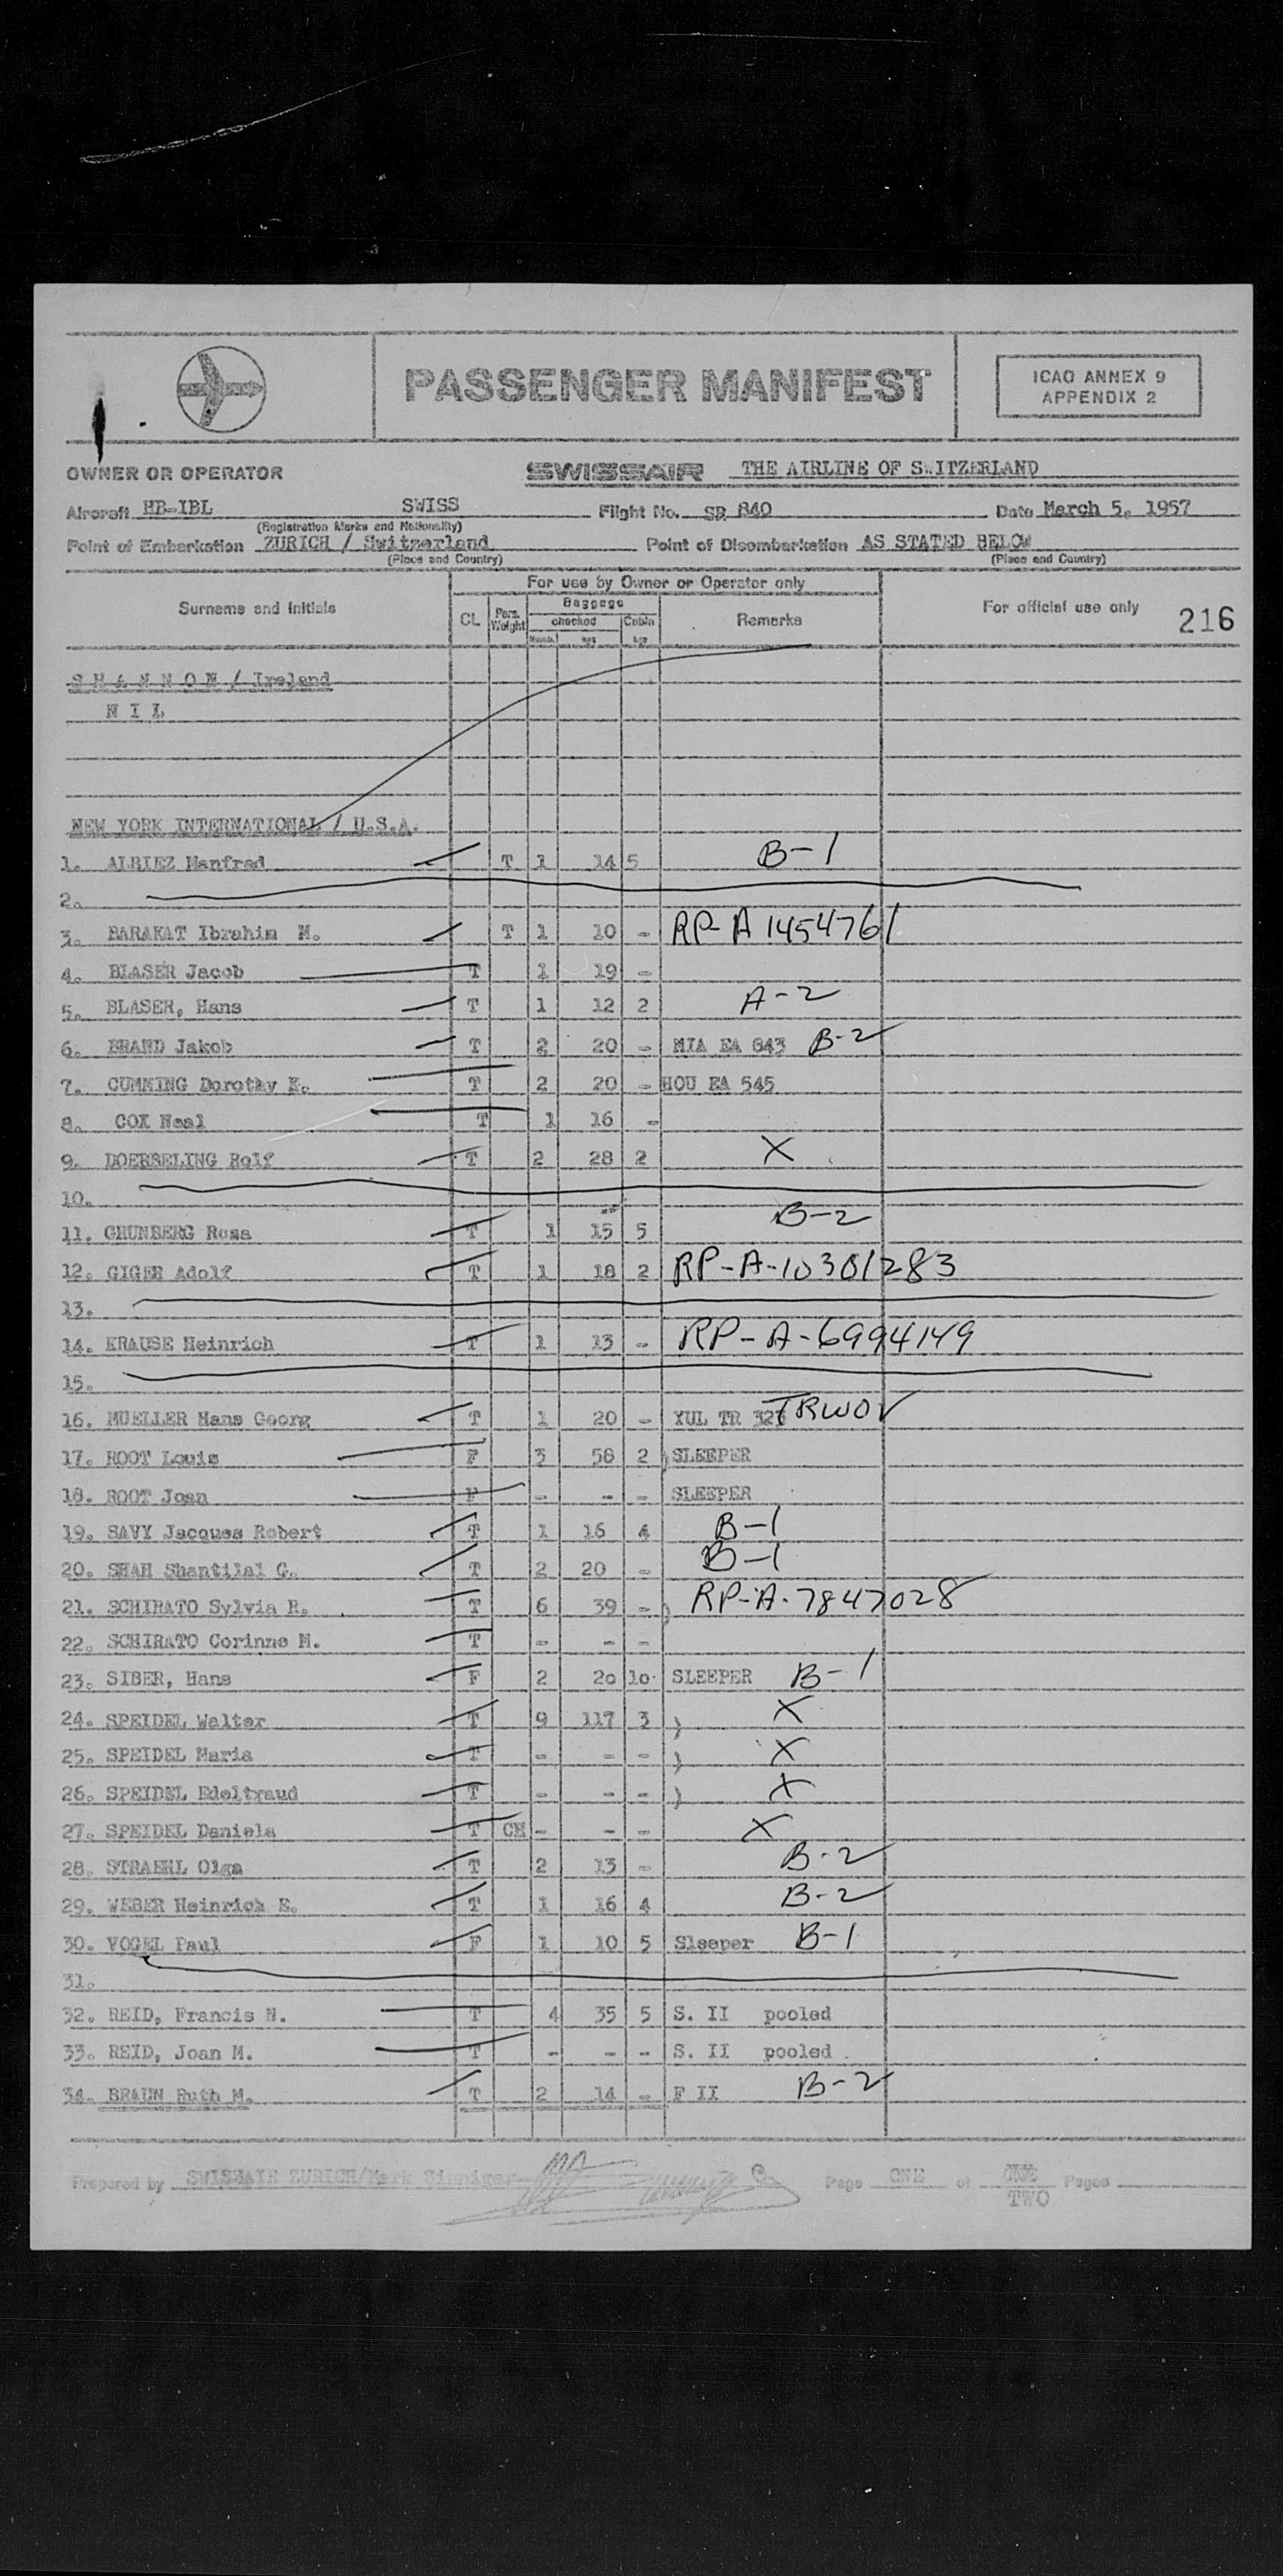 PASSENGER MANIFEST
ICAO ANNEX 9
APPENDIX 2
OWNER OR OPERATOR SWISSAIR THE AIRLINE OF SWITZERLAND
Aircraft HB-IBL SWISS Flight No. SR 840 Date March 5, 1957
(Registration Marks and Nationality)
Point of Embarkation ZURICH / Switzerland Point of Disembarkation AS STATED BELOW
(Place and Country) (Place and Country)
For use by Owner or Operator only
Surname and initials CL Pers. Weight Baggage checked Numb. kgs Cabin kgs Remarks For official use only 216
S H A N N O N / Ireland
N I L
NEW YORK INTERNATIONAL / U.S.A.
1. ALBIEZ Manfred T 1 14 5 B-1
2.
3. BARAKAT Ibrahim M. T 1 10 - RP-A 1454761
4. BLASER Jacob T 1 19 -
5. BLASER, Hans T 1 12 2 A-2
6. BRAND Jakob T 2 20 - MIA EA 643 B-2
7. CUMMING Dorothy K. T 2 20 - HOU EA 545
8. COX Neal T 1 16 -
9. DOERSELING Rolf T 2 28 2 X
10.
11. GRUNBERG Rosa T 1 15 5 B-2
12. GIGER Adolf T 1 18 2 RP-A-10301283
13.
14. KRAUSE Heinrich T 1 13 - RP-A-6994149
15.
16. MUELLER Hans Georg T 1 20 - YUL TR 327 TRWOV
17. ROOT Louis F 3 58 2 ) SLEEPER
18. ROOT Joan F - - - SLEEPER
19. SAVY Jacques Robert T 1 16 4 B-1
20. SHAH Shantilal G. T 2 20 - B-1
21. SCHIRATO Sylvia R. T 6 39 - ) RP-A-7847028
22. SCHIRATO Corinne M. T - - -
23. SIBER, Hans F 2 20 10 SLEEPER B-1
24. SPEIDEL Walter T 9 117 3 ) X
25. SPEIDEL Maria T - - - ) X
26. SPEIDEL Edeltraud T - - - ) X
27. SPEIDEL Daniela T CH - - - X
28. STRAEHL Olga T 2 13 - B-2
29. WEBER Heinrich E. T 1 16 4 B-2
30. VOGEL Paul F 1 10 5 Sleeper B-1
31.
32. REID, Francis N. T 4 35 5 S. II pooled
33. REID, Joan M. T - - - S. II pooled
34. BRAUN Ruth M. T 2 14 - F II B-2
Prepared by SWISSAIR ZURICH/Mark Page ONE of ONE Pages
TWO